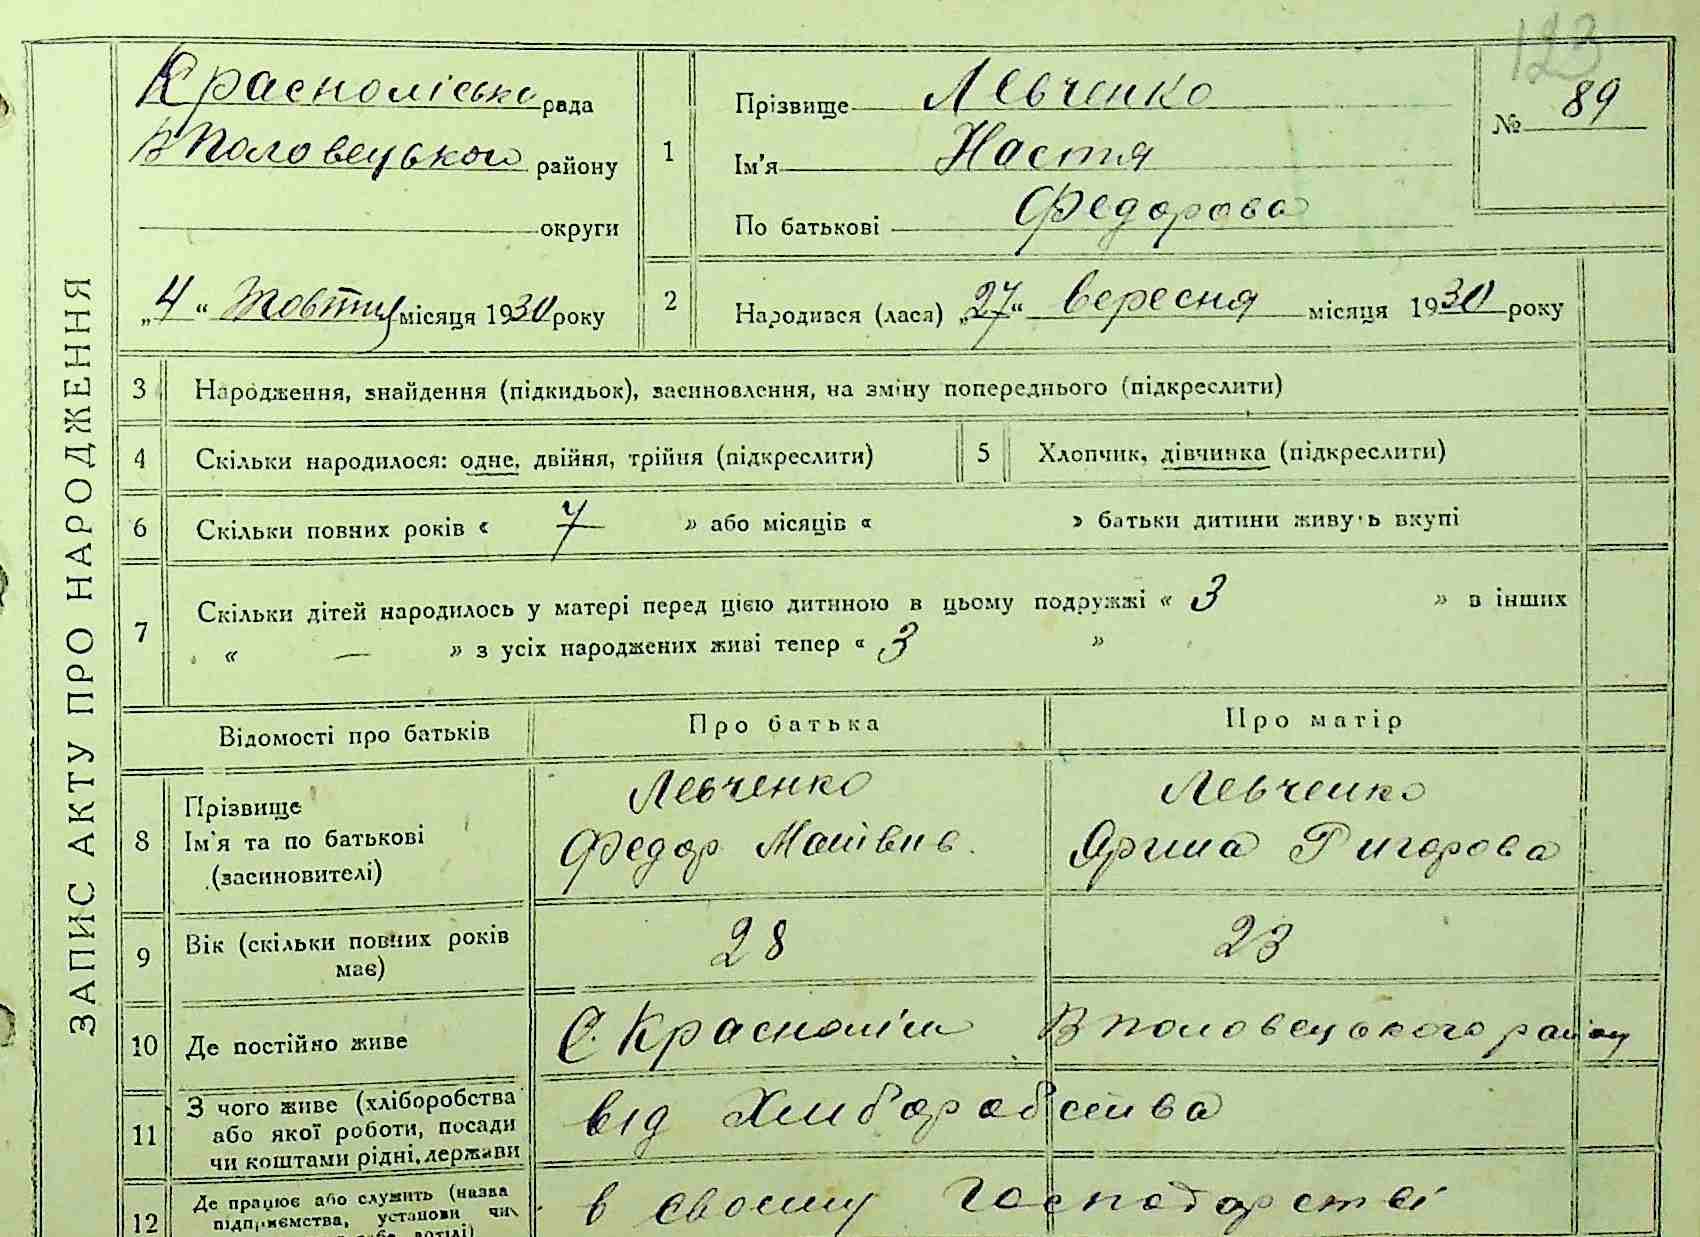 123
ЗАПИС АКТУ ПРО НАРОДЖЕННЯ
Красноліська рада
В Половецького району
округи
„4“ Жовтня місяця 1930 року
1
Прізвище Левченко
Ім'я Настя
По батькові Федорова
№ 89
2
Народився (лася) „27“ вересня місяця 1930 року
3 Народження, знайдення (підкидьок), засиновлення, на зміну попереднього (підкреслити)
4 Скільки народилося: одне, двійня, трійня (підкреслити)
5 Хлопчик, дівчинка (підкреслити)
6 Скільки повних років « 7 » або місяців « » батьки дитини живуть вкупі
7 Скільки дітей народилось у матері перед цією дитиною в цьому подружжі « 3 » в інших
« — » з усіх народжених живі тепер « 3 »
Відомості про батьків
Про батька
Про матір
8 Прізвище
Ім'я та по батькові
(засиновителі)
Левченко
Федор Матівів.
Левченко
Ярина Григорова
9 Вік (скільки повних років
має)
28
23
10 Де постійно живе
С. Красноліси В Половецького району
11 З чого живе (хліборобства
або якої роботи, посади
чи коштами рідні, держави
від Хліборобства
12 Де працює або служить (назва
підприємства, установи чи
в своєму господарстві